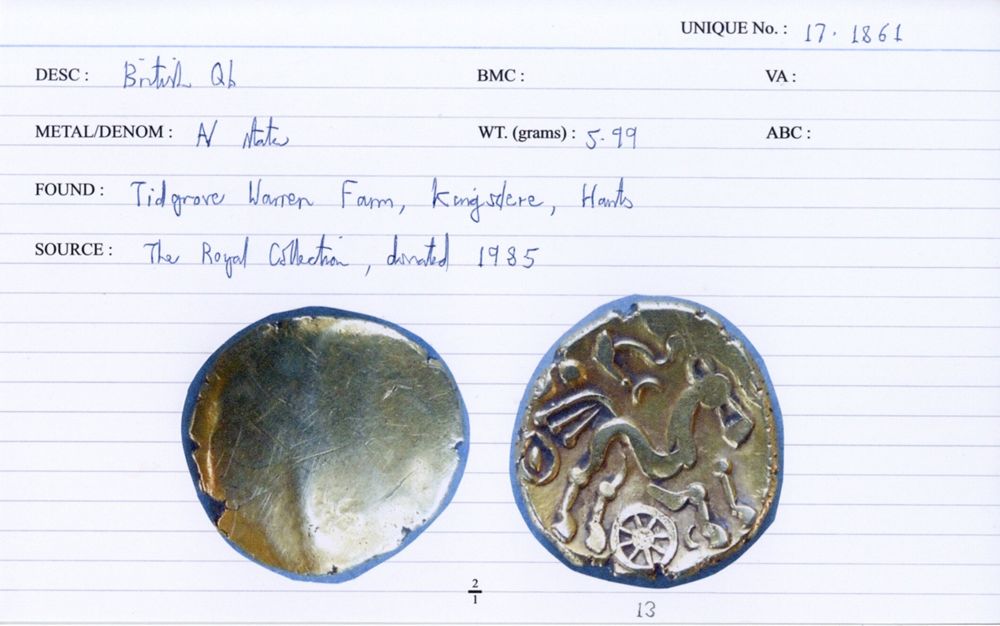 UNIQUE No. : 17. 1861
DESC : British Qb
BMC :
VA :
METAL/DENOM : AV stater
WT. (grams) : 5.99
ABC :
FOUND : Tidgrove Warren Farm, Kingsclere, Hants
SOURCE : The Royal Collection, donated 1985
2
1
13